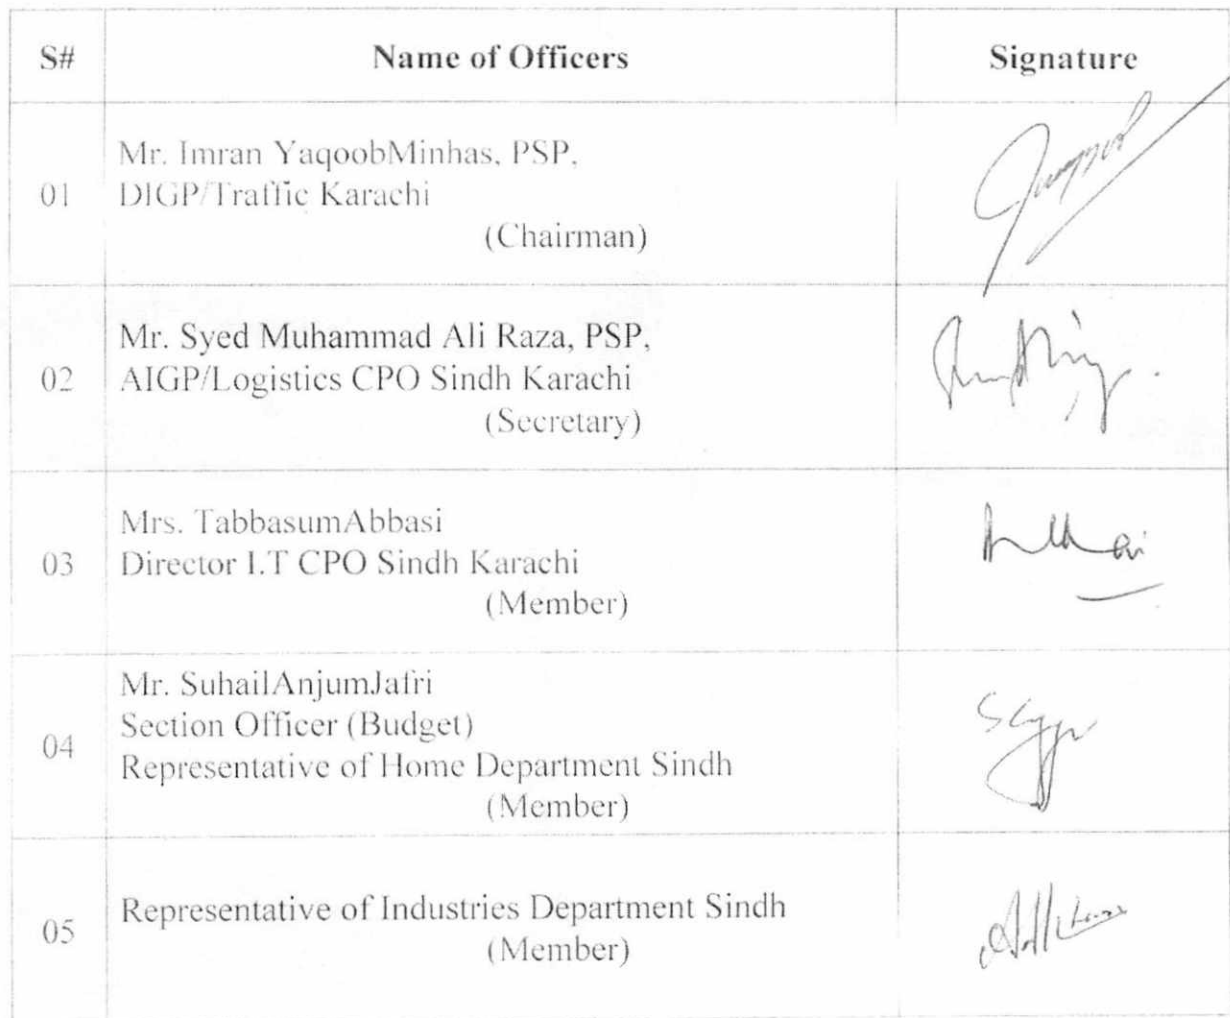 S# Name of Officers Signature
01 Mr. Imran YaqoobMinhas, PSP,
DIGP/Traffic Karachi
(Chairman)
02 Mr. Syed Muhammad Ali Raza, PSP,
AIGP/Logistics CPO Sindh Karachi
(Secretary)
03 Mrs. TabbasumAbbasi
Director I.T CPO Sindh Karachi
(Member)
04 Mr. SuhailAnjumJafri
Section Officer (Budget)
Representative of Home Department Sindh
(Member)
05 Representative of Industries Department Sindh
(Member)